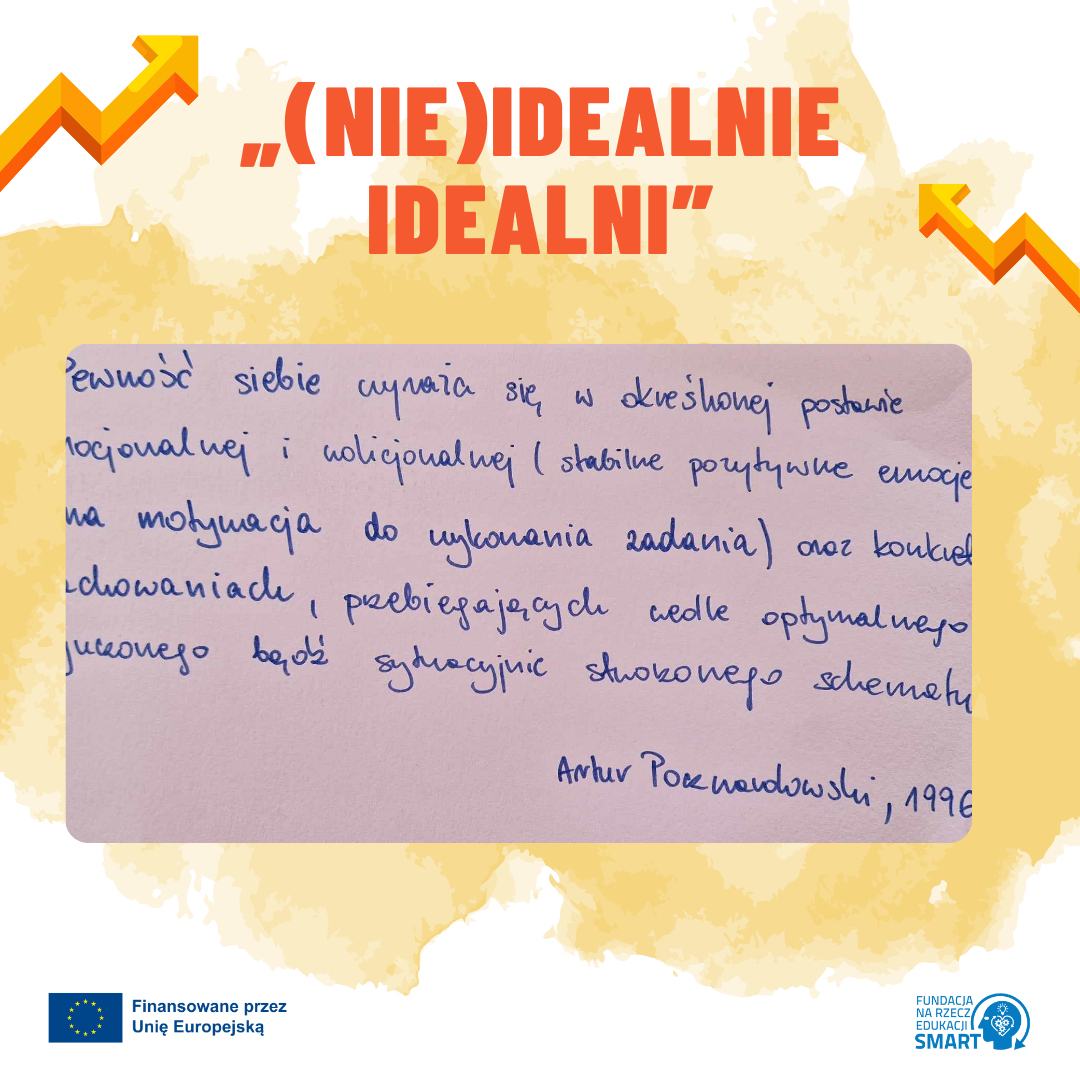 „(NIE)IDEALNIE
IDEALNI”
Pewność siebie wyraża się w określonej postawie
mocjonalnej i wolicjonalnej ( stabilne pozytywne emocje
na motywacja do wykonania zadania) oraz konkret
achowaniach, przebiegających wedle optymalnego
yuczonego bądź sytuacyjnie stworzonego schematu
Artur Poczwardowski, 1996
Finansowane przez
Unię Europejską
FUNDACJA
NA RZECZ
EDUKACJI
SMART